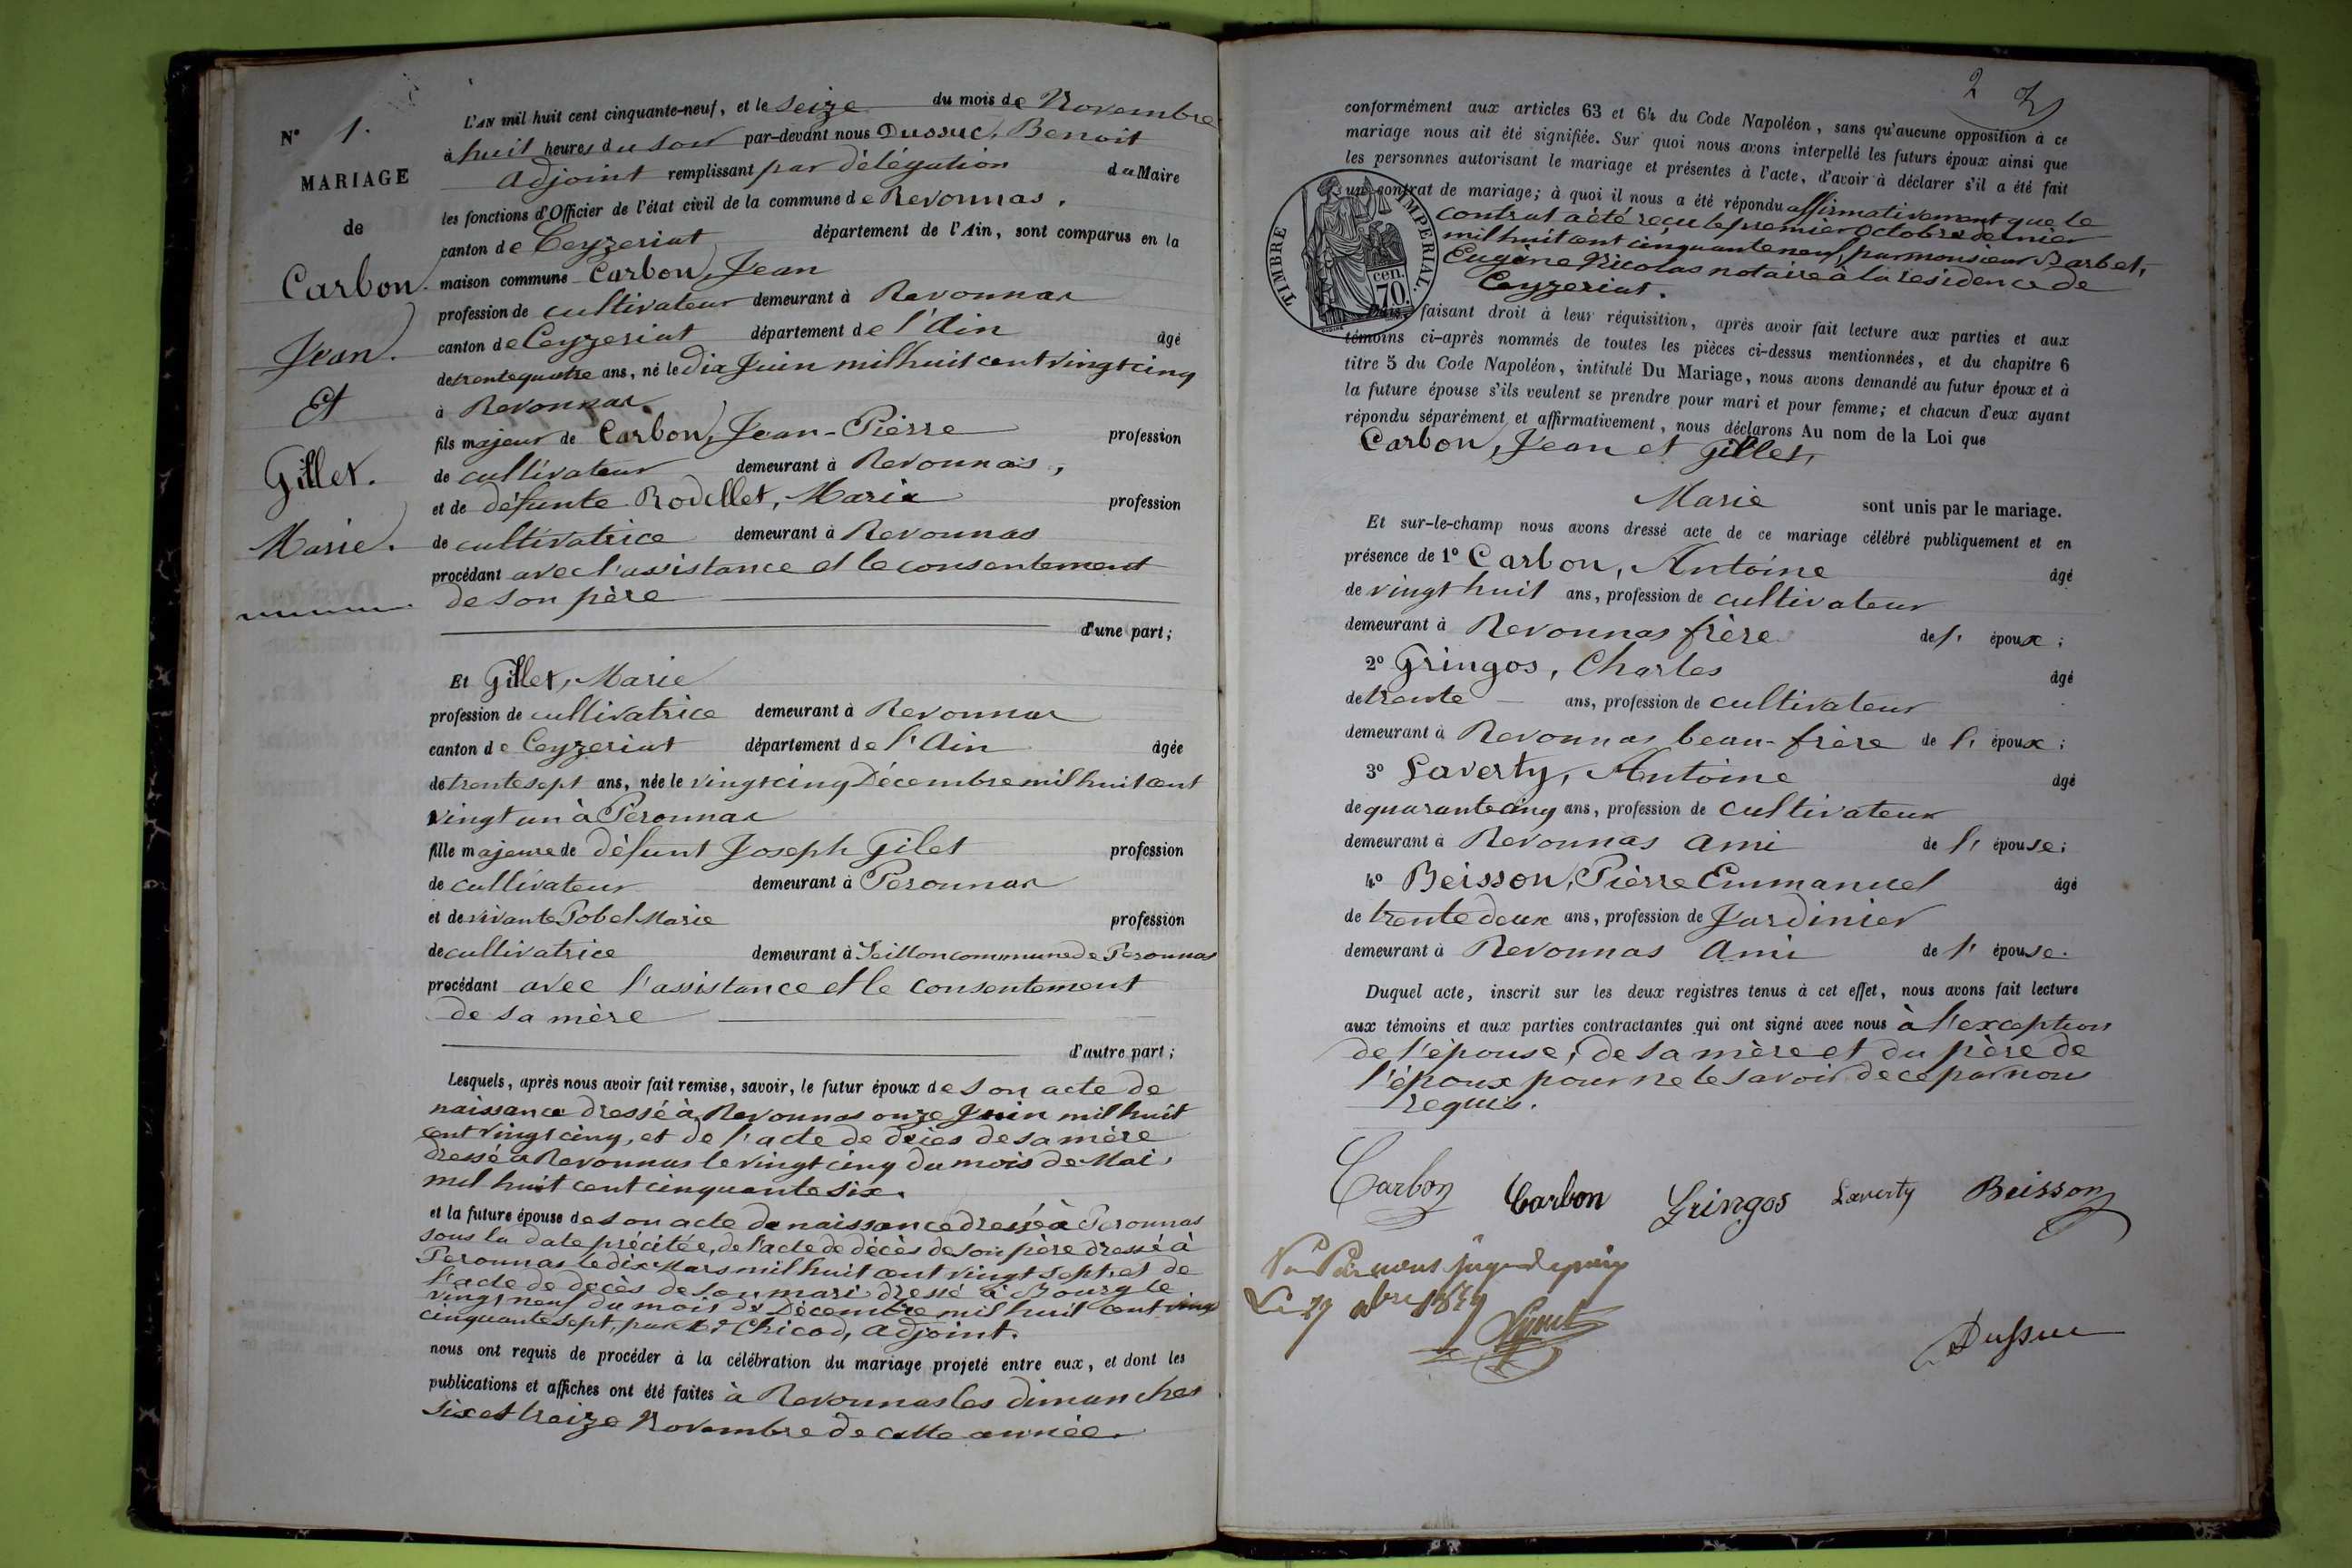 N° 1.
MARIAGE
de
Carbon.
Jean.
Et
Gillet.
Marie.
L'AN mil huit cent cinquante-neuf, et le seize du mois de Novembre
à huit heures du soir par-devant nous Dussuc, Benoit
Adjoint remplissant par délégation du Maire
les fonctions d'Officier de l'état civil de la commune de Revonnas,
canton de Ceyzeriat département de l'Ain, sont comparus en la
maison commune Carbon, Jean
profession de cultivateur demeurant à Revonnas
canton de Ceyzeriat département de l'Ain âgé
de trente quatre ans, né le dix Juin mil huit cent vingt cinq
à Revonnas.
fils majeur de Carbon, Jean-Pierre profession
de cultivateur demeurant à Revonnas,
et de défunte Rodellet, Marie profession
de cultivatrice demeurant à Revonnas
procédant avec l'assistance et le consentement
de son père
d'une part;
Et Gillet, Marie
profession de cultivatrice demeurant à Revonnas
canton de Ceyzeriat département de l'Ain âgée
de trente sept ans, née le vingt cinq Décembre mil huit cent
vingt un à Peronnas
fille majeure de défunt Joseph Gilet profession
de cultivateur demeurant à Peronnas
et de vivante Pobel Marie profession
de cultivatrice demeurant à Seillon commune de Peronnas
procédant avec l'assistance et le consentement
de sa mère
d'autre part;
Lesquels, après nous avoir fait remise, savoir, le futur époux de son acte de
naissance dressé à Revonnas onze Juin mil huit
cent vingt cinq, et de l'acte de décès de sa mère
dressé à Revonnas le vingt cinq du mois de Mai,
mil huit cent cinquante six.
et la future épouse de son acte de naissance dressé à Peronnas
sous la date précitée, de l'acte de décès de son père dressé à
Peronnas le dix Mars mil huit cent vingt sept, et de
l'acte de décès de son mari dressé à Bourg le
vingt neuf du mois de Décembre mil huit cent vingt
cinquante sept, par Chicod, adjoint.
nous ont requis de procéder à la célébration du mariage projeté entre eux, et dont les
publications et affiches ont été faites à Revonnas les dimanches
six et treize Novembre de cette année.
2
conformément aux articles 63 et 64 du Code Napoléon, sans qu'aucune opposition à ce
mariage nous ait été signifiée. Sur quoi nous avons interpellé les futurs époux ainsi que
les personnes autorisant le mariage et présentes à l'acte, d'avoir à déclarer s'il a été fait
un contrat de mariage; à quoi il nous a été répondu affirmativement que le
contrat a été reçu le premier Octobre dernier
mil huit cent cinquante neuf, par monsieur Barbet,
Eugène Nicolas notaire à la résidence de
Ceyzeriat.
TIMBRE IMPERIAL.
70. cen.
faisant droit à leur réquisition, après avoir fait lecture aux parties et aux
témoins ci-après nommés de toutes les pièces ci-dessus mentionnées, et du chapitre 6
titre 5 du Code Napoléon, intitulé Du Mariage, nous avons demandé au futur époux et à
la future épouse s'ils veulent se prendre pour mari et pour femme; et chacun d'eux ayant
répondu séparément et affirmativement, nous déclarons Au nom de la Loi que
Carbon, Jean et Gillet,
Marie sont unis par le mariage.
Et sur-le-champ nous avons dressé acte de ce mariage célébré publiquement et en
présence de 1° Carbon, Antoine âgé
de vingt huit ans, profession de cultivateur
demeurant à Revonnas frère de l' époux;
2° Gringos, Charles âgé
de trente ans, profession de cultivateur
demeurant à Revonnas beau-frère de l' époux;
3° Laverty, Antoine âgé
de quarante cinq ans, profession de cultivateur
demeurant à Revonnas ami de l' épouse;
4° Beisson, Pierre Emmanuel âgé
de trente deux ans, profession de Jardinier
demeurant à Revonnas Ami de l' épouse.
Duquel acte, inscrit sur les deux registres tenus à cet effet, nous avons fait lecture
aux témoins et aux parties contractantes qui ont signé avec nous à l'exception
de l'épouse, de sa mère et du père de
l'époux pour ne le savoir de ce par nous
requis.
Carbon Carbon Gringos Laverty Beisson
Vu Par nous juge de paix
Le 29 9bre 1859
Dussuc